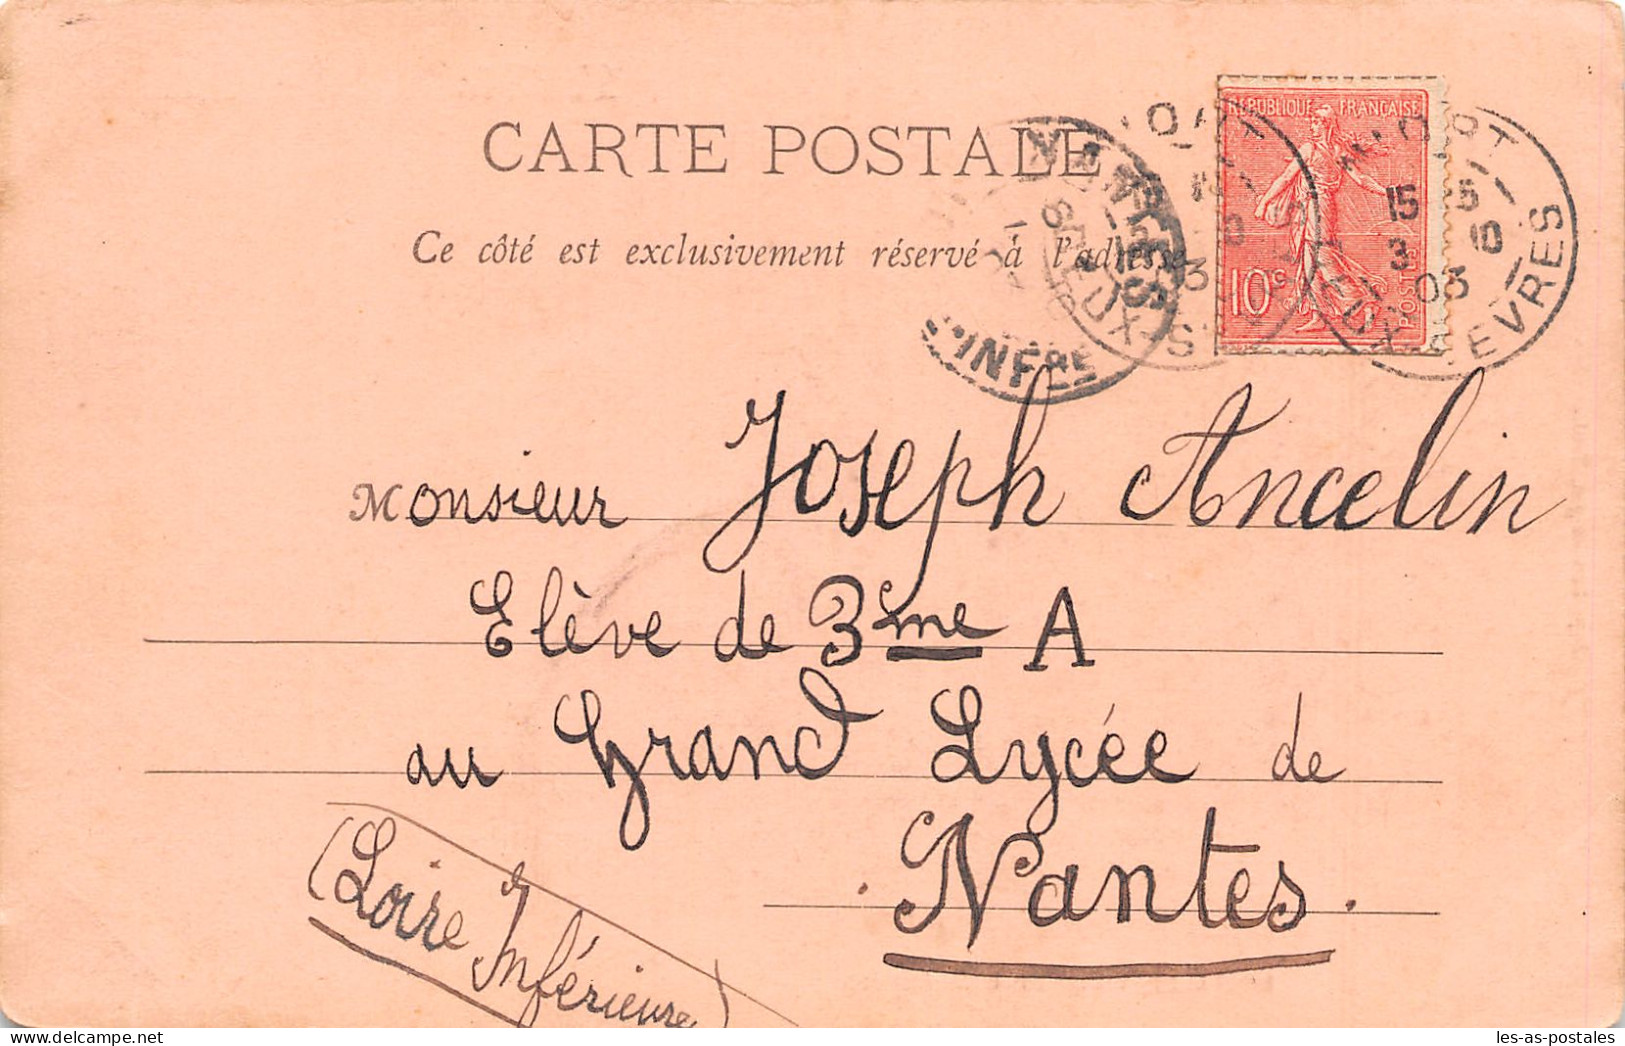 CARTE POSTALE
Ce côté est exclusivement réservé à l'adresse
RÉPUBLIQUE FRANÇAISE
10c
POSTES
NIORT
15
3 10
03
DEUX-SEVRES
NANTES
INFRE
Monsieur Joseph Ancelin
Elève de 3me A
au Grand Lycée de
Nantes.
(Loire Inférieure)
les-as-postales